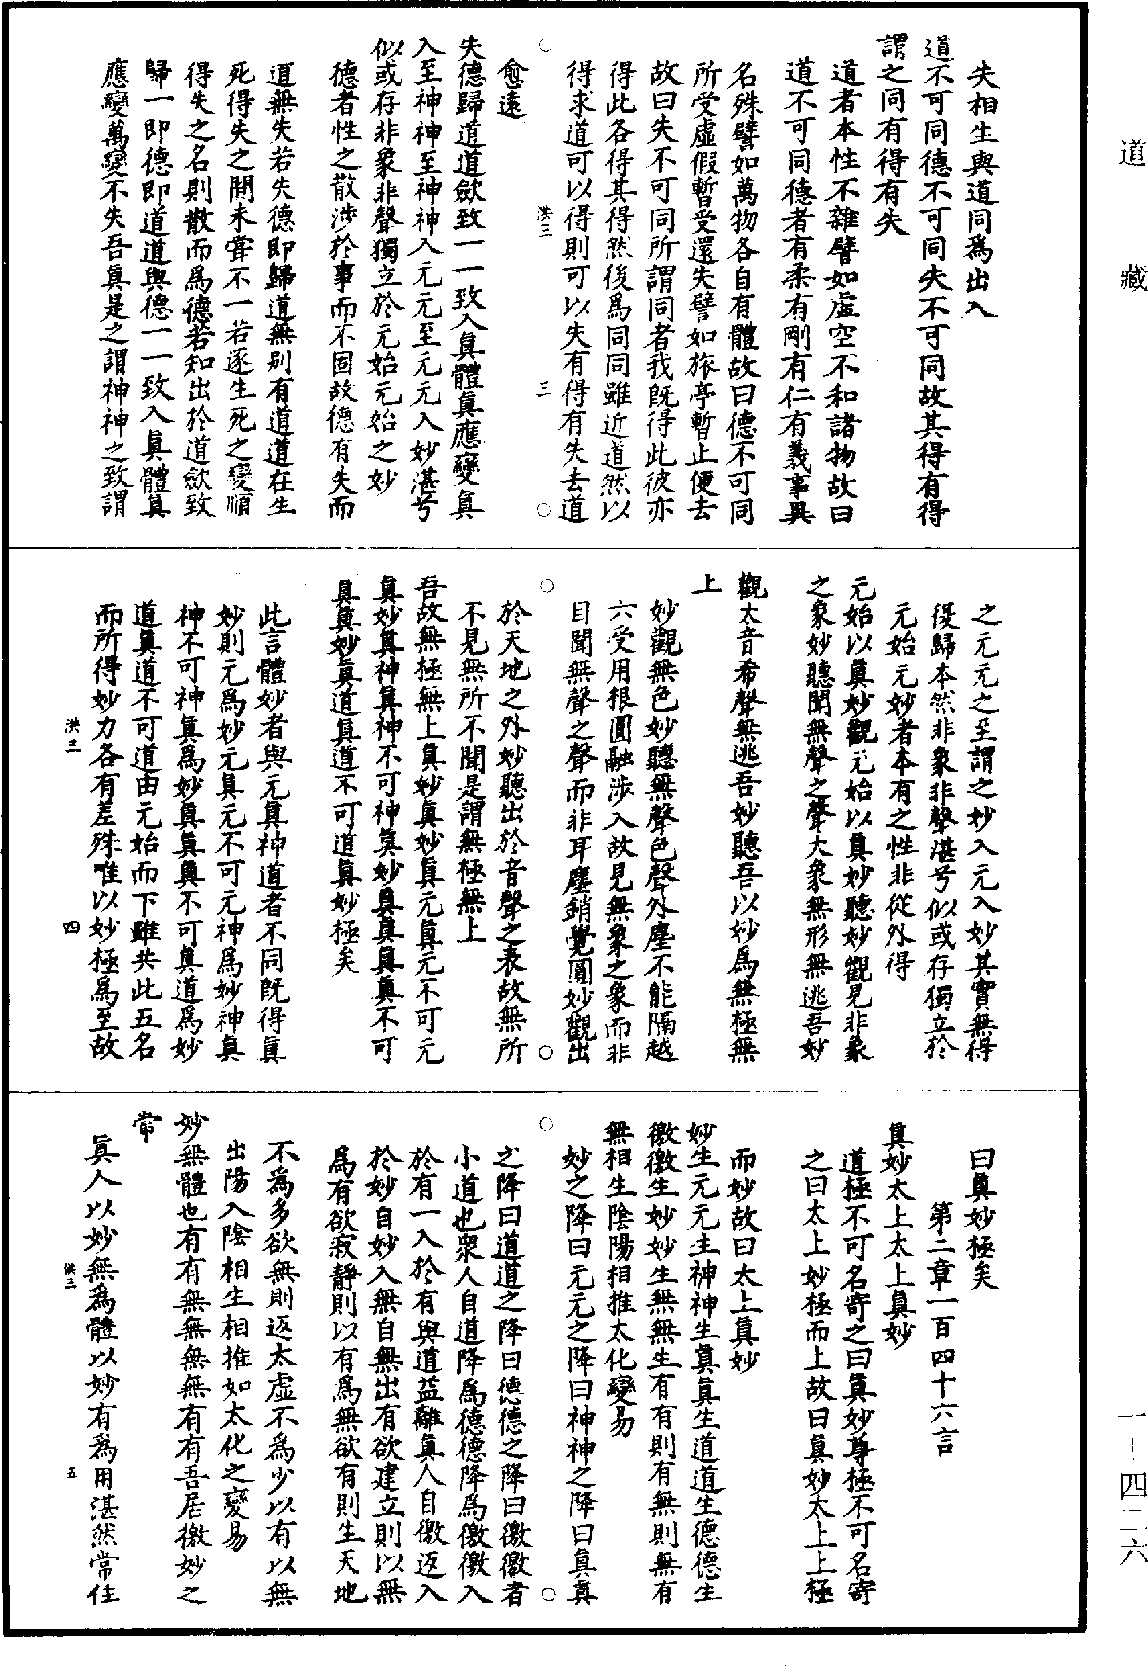 道藏
一-四二六
失相生與道同爲出入
道不可同德不可同失不可同故其得有得
謂之同有得有失
道者本性不雜譬如虛空不和諸物故曰
道不可同德者有柔有剛有仁有義事異
名殊譬如萬物各自有體故曰德不可同
所受虛假暫受還失譬如旅亭暫止便去
故曰失不可同所謂同者我既得此彼亦
得此各得其得然後爲同同雖近道然以
得求道可以得則可以失有得有失去道
洪三 三
愈遠
失德歸道道歛致一一致入眞體眞應變眞
入至神神至神神入元元至元元入妙湛兮
似或存非象非聲獨立於元始元始之妙
德者性之散涉於事而不固故德有失而
道無失若失德即歸道無別有道道在生
死得失之間未甞不一若逐生死之變順
得失之名則散而爲德若知出於道歛致
歸一即德即道道與德一一致入眞體眞
應變萬變不失吾眞是之謂神神之致謂
之元元之至謂之妙入元入妙其實無得
復歸本然非象非聲湛兮似或存獨立於
元始元妙者本有之性非從外得
元始以眞妙觀元始以眞妙聽妙觀見非象
之象妙聽聞無聲之聲大象無形無逃吾妙
觀太音希聲無逃吾妙聽吾以妙爲無極無
上
妙觀無色妙聽無聲色聲外塵不能隔越
六受用根圓融涉入故見無象之象而非
目聞無聲之聲而非耳塵銷覺圓妙觀出
於天地之外妙聽出於音聲之表故無所
不見無所不聞是謂無極無上
吾故無極無上眞妙眞妙眞元眞元不可元
眞妙眞神眞神不可神眞妙眞眞眞眞不可
眞眞妙眞道眞道不可道眞妙極矣
此言體妙者與元眞神道者不同既得眞
妙則元爲妙元眞元不可元神爲妙神眞
神不可神眞爲妙眞眞眞不可眞道爲妙
道眞道不可道由元始而下雖共此五名
而所得妙力各有差殊唯以妙極爲至故
洪三 四
曰眞妙極矣
第二章一百四十六言
眞妙太上太上眞妙
道極不可名寄之曰眞妙尊極不可名寄
之曰太上妙極而上故曰眞妙太上上極
而妙故曰太上眞妙
妙生元元生神神生眞眞生道道生德德生
徼徼生妙妙生無無生有有則有無則無有
無相生陰陽相推太化變易
妙之降曰元元之降曰神神之降曰眞眞
之降曰道道之降曰德德之降曰徼徼者
小道也衆人自道降爲德德降爲徼徼入
於有一入於有與道益離眞人自徼返入
於妙自妙入無自無出有欲建立則以無
爲有欲寂靜則以有爲無欲有則生天地
不爲多欲無則返太虛不爲少以有以無
出陽入陰相生相推如太化之變易
妙無體也有有無無無無有有吾居徼妙之
常
眞人以妙無爲體以妙有爲用湛然常住
洪三 五